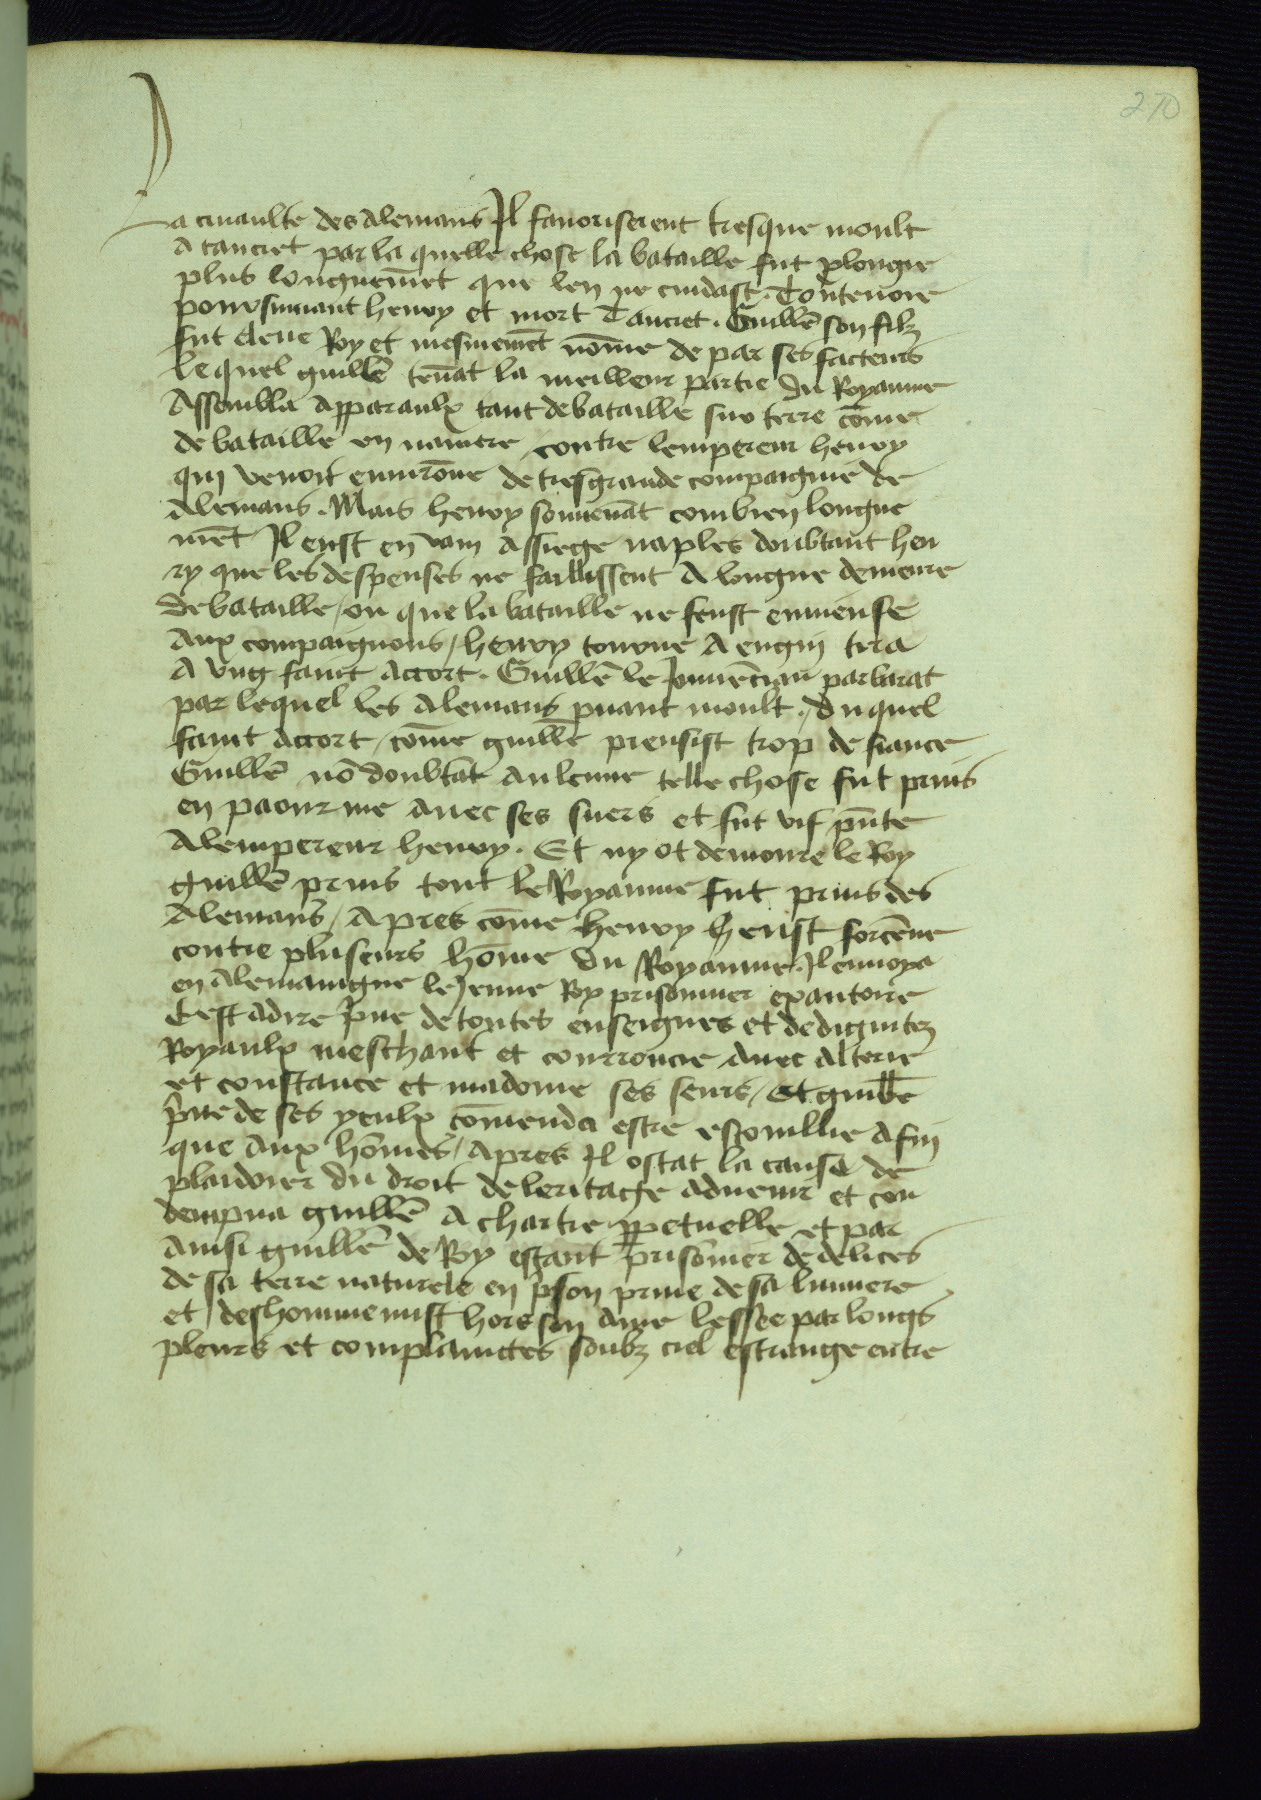 270
La cruaulte des Alemans Il favoriserent tresque moult
A tancret par la quelle chose la bataille fut plongie
plus longuemẽt que len ne cuidast. Tontevoie
poursuiuant henry et mort Tancret. Guillẽ son filz
fut cleue Roy et mesmemẽt nõme de par ses facteurs
le quel guillẽ tenãt la meilleur partie du Royaume
Assembla Apparaulx tant de bataille sur terre cõme
de bataille en nauiere contre lempereur henry
qui venoit enuirõne de tresgrande compaignie de
Alemans. Mais henry souuenãt combien longue
mẽt Il eust en vain Assiege naples doubtant hen
ry que les despenses ne faillissent A longue demeure
de bataille / ou que la bataille ne feust ennuieuse
Aux compaignons / henry tourne A engin tira
A vng faint Accort. Guillẽ le Jouuẽciau par barat
par lequel les Alemans puant moult. Du quel
faint Accort / cõme guillẽ prensist trop de fiance
Guillẽ nõ doubtãt Aulcune telle chose fut prins
en paourme Auec ses suers et fut vif pñte
A lempereur henry. Et ny ot demoure le Roy
guillẽ prins tout le Royaume fut prins des
Alemans / Apres cõme henry heust forcẽne
contre pluseurs hõme du Royaume. Il enuoya
en Alemaingne le Jeune Roy prisonnier exautoire
Cest adire p̃ue de toutes enseignes et de dignitez
Royaulx meschant et courroucie Auec Alterie
et constance et madome ses seurs / Et guillẽ
p̃ue de ses yeulx cõmenda estre escouillie Afin
que Aux hõmes / Apres Il ostat la cause de
plaidoier du droit de leritage Aduenir et con
dempna guillẽ A chartre ꝑpetuelle et par
Ainsi guillẽ de Roy estant prisõnier de delices
de sa terre naturele en p̃son priue de sa lumiere
et deshomme mist hors son Ame lessee par longs
pleurs et complainctes soubz ciel estrange entre